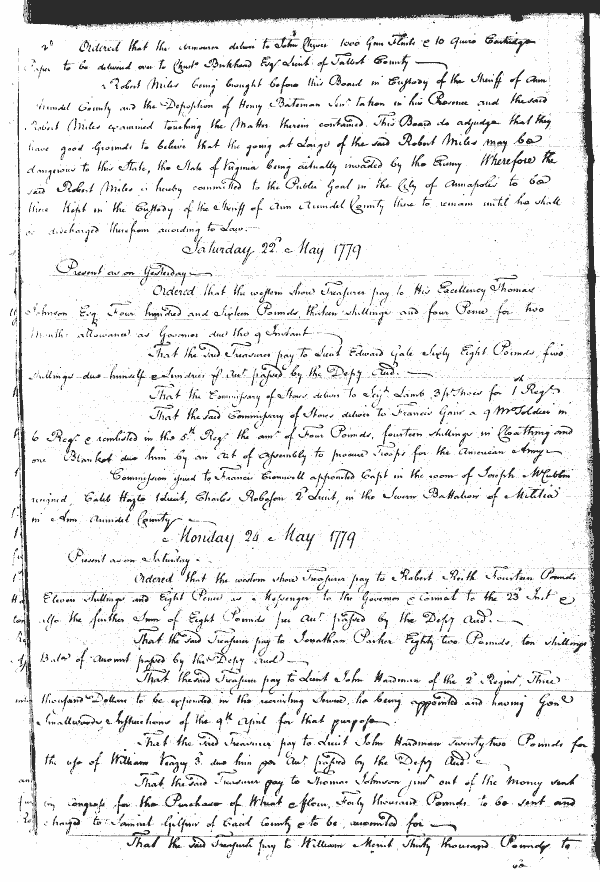 Ordered that the Armourer deliver to John Cheves 1000 Gun Flints & 10 Quire Cartridge
Paper to be delivered over to Christ.r Birkhead Esq.r Lieut of Talbot County
Robert Miles being brought before this Board in Custody of the Sheriff of Ann
Arundel County and the Deposition of Henry Bateman taken in his Presence and the said
Robert Miles examined touching the Matter therein contained. This Board do adjudge that they
have good Grounds to believe that the going at Large of the said Robert Miles may be
dangerous to this State, the State of Virginia being actually invaded by the Enemy. Wherefore the
said Robert Miles is hereby committed to the Public Goal in the City of Annapolis to be
there Kept in the Custody of the Sheriff of Ann Arundel County there to remain until he shall
be discharged therefrom according to Law.
Saturday 22d May 1779
Present as on Yesterday
Ordered that the western shore Treasurer pay to His Excellency Thomas
Johnson Esq Four hundred and Sixteen Pounds, thirteen shillings and four Pence for two
Months allowance as Governor due the 9 Instant
That the said Treasurer pay to Lieut Edward Gale Sixty Eight Pounds, five
shillings due himself & Sundries p Acct passed by the Depy Aud.r
That the Commissary of Stores deliver to Lamb 3 pr Shoes for 1st Regt
That the said Commissary of Stores deliver to Francis a 9 Mo Soldier in
6 Regt & reenlisted in the 5th Regt the amt of Four Pounds, fourteen shillings in Cloathing and
one Blanket due him by an Act of Assembly to procure Troops for the American Army
Commission issued to Francis Cromwell appointed Capt in the room of Joseph McCubbin
resigned, Caleb 1 Lieut, Charles Robosson 2d Lieut, in the Severn Battalion of Militia
in Ann Arundel County
Monday 24 May 1779
Present as on Saturday
Ordered that the western shore Treasurer pay to Robert Reith Fourteen Pounds
Eleven shillings and Eight Pence as a Messenger to the Governor & Council to the 23d Inst &
also the further Sum of Eight Pounds per Acct passed by the Depy Aud.r
That the said Treasurer pay to Jonathan Parker Eighty two Pounds, ten shillings
Bala of Account passed by the Depy Aud
That the said Treasurer pay to Lieut John Hardman of the 2d Regimt Three
thousand Dollars to be expended in the recruiting Service, he being appointed and having Genl
Smallwoods Instructions of the 9th April for that purpose
That the said Treasurer pay to Lieut John Hardman twenty two Pounds for
the use of William Veazy due him per Acct passed by the Depy Aud.r
That the said Treasurer pay to Thomas Johnson junr out of the money sent
by Congress for the Purchase of Wheat & flour, Forty thousand Pounds to be sent and
charged to Samuel Gilpin of Cecil County & to be accounted for
That the said Treasurer pay to William Thirty thousand Pounds to
be